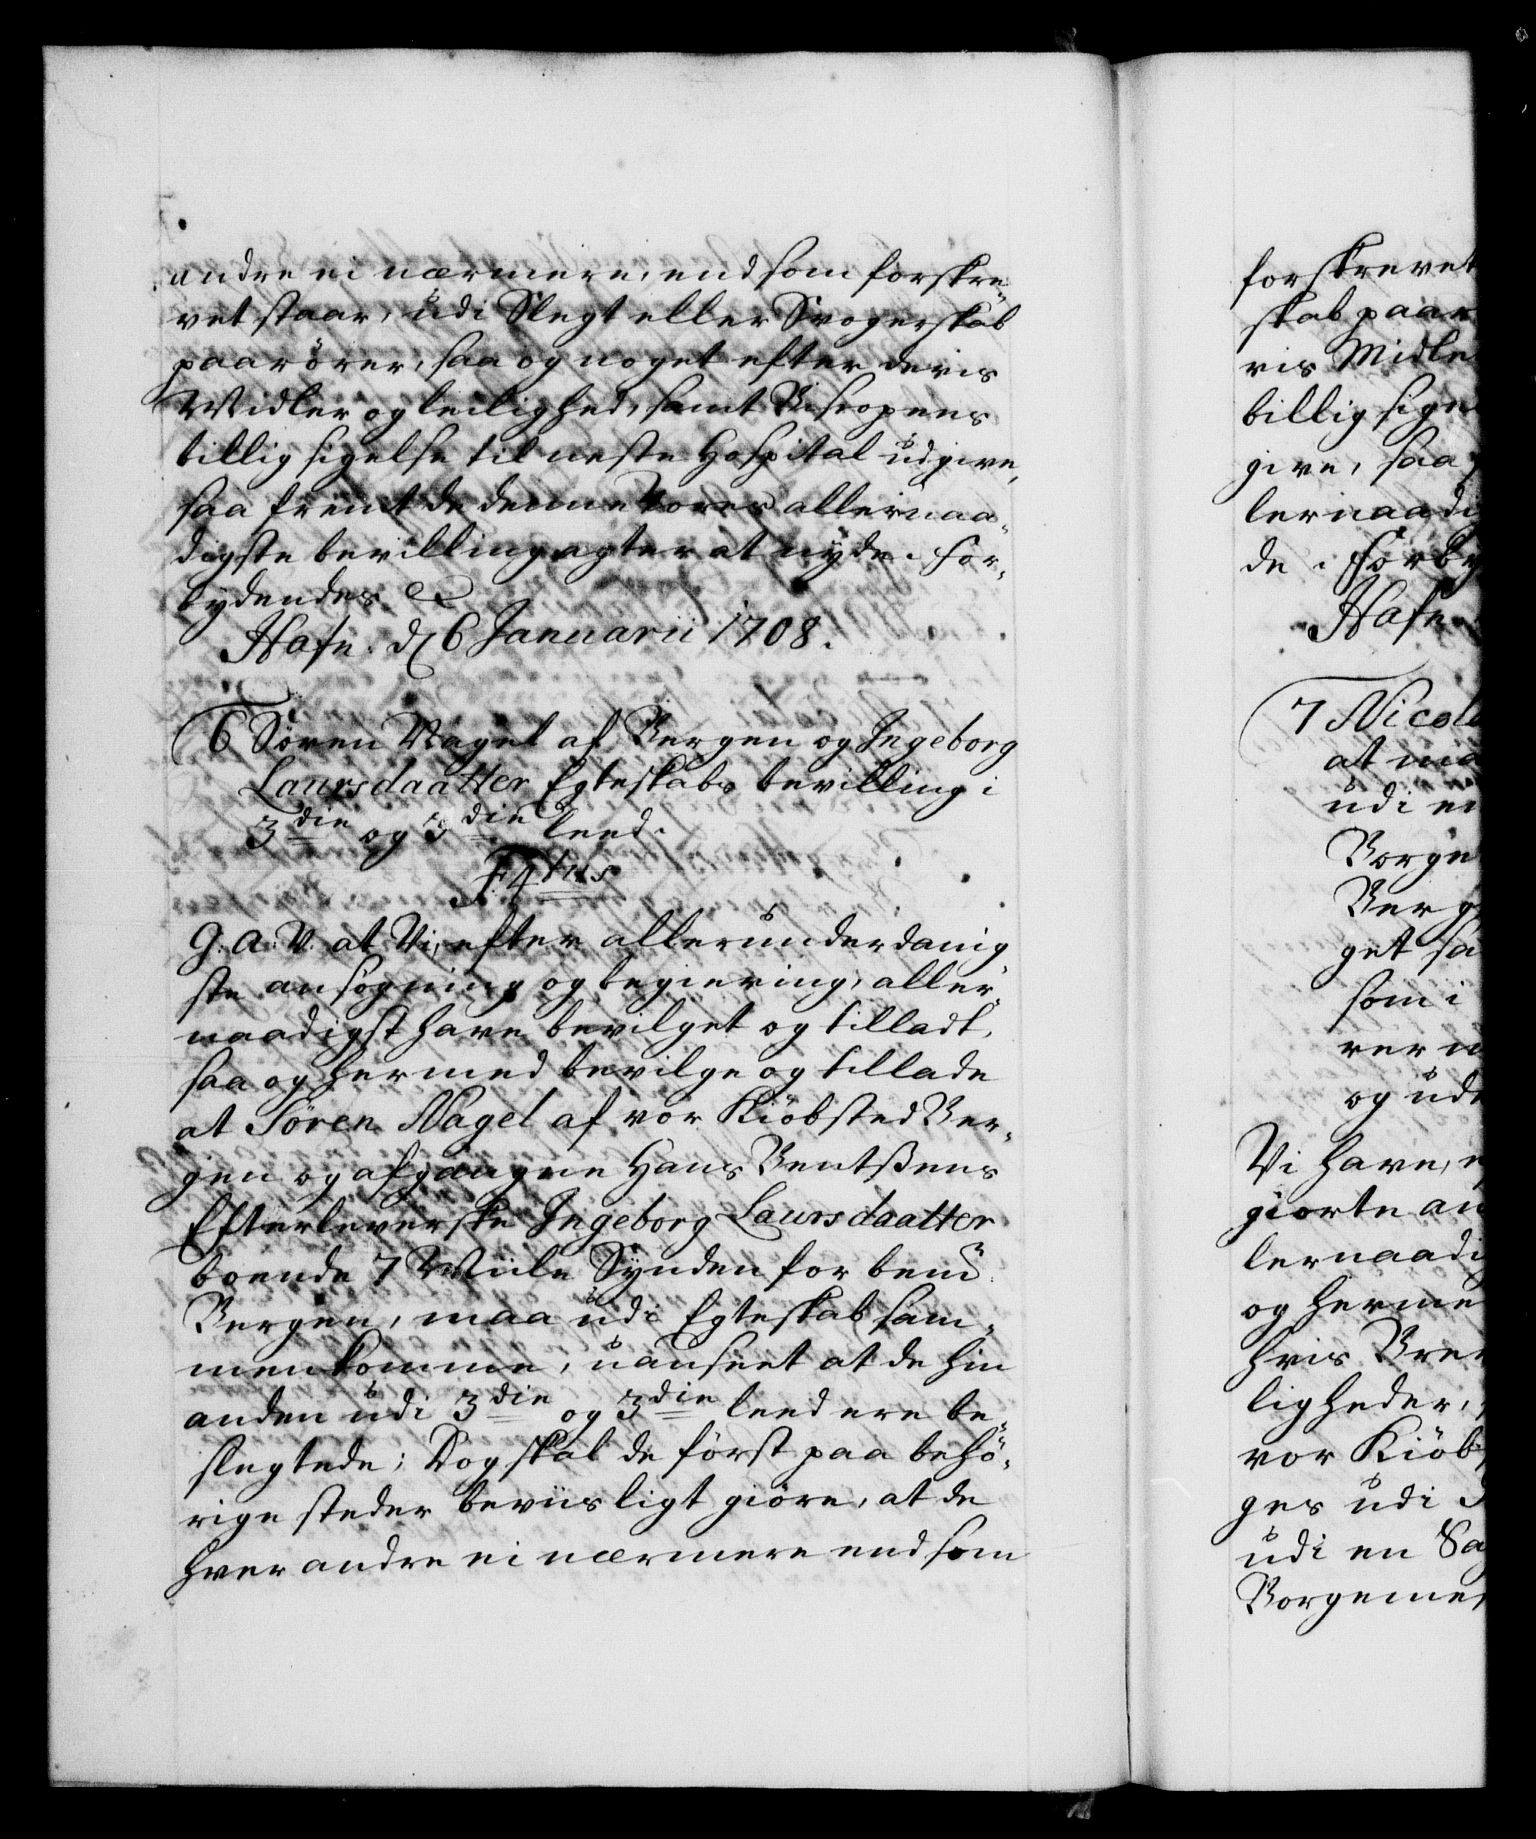 andre ei nærmere, end som forskre-
vet staar, udi Slegt eller Svogerskab
paarörer, saa og noget efter deris
Midler og leilighed, samt Biscopens
billig sigelse til neste Hospital udgive,
saa fremt de denne Vores allernaa-
digste bevilling agter at nyde. For-
bydendes &
Hafn. d 6 Januarii 1708.
6 Sören Nagel af Bergen og Ingeborg
Laursdaatter Egteskabs bevilling i
3die og 3die leed.
F. 4tus
G. A. V. at Vi, efter allerunderdanig
ste ansögning og begiering, aller-
naadigst have bevilget og tilladt,
saa og hermed bevilge og tillade
at Sören Nagel af vor Kiöbsted Ber-
gen og afgangne Hans Bentßens
Efterleverske Ingeborg Laursdaatter
boende 7 Miile Synden for bem
Bergen, maa udi Egteskab sam-
menkomme, uanseet at de hin
anden udi 3die og 3die leed ere be-
slegtede; Dog skal de först paa behö-
rige steder beviisligt giöre, at de
hver andre ei nærmere end som
forskrevet
skab paar
ris Midle
billig sige
give, saa
lernaadi
de. Forby
Hafn.
7 Nicol
at ma
udi e
Borge
Berg
get sa
som i
ver
og ud
Vi have, e
giorte an
lernaadi
og herme
hvis Bre
ligheder,
vor Kiöb
ges udi
udi en Sa
Borgemes